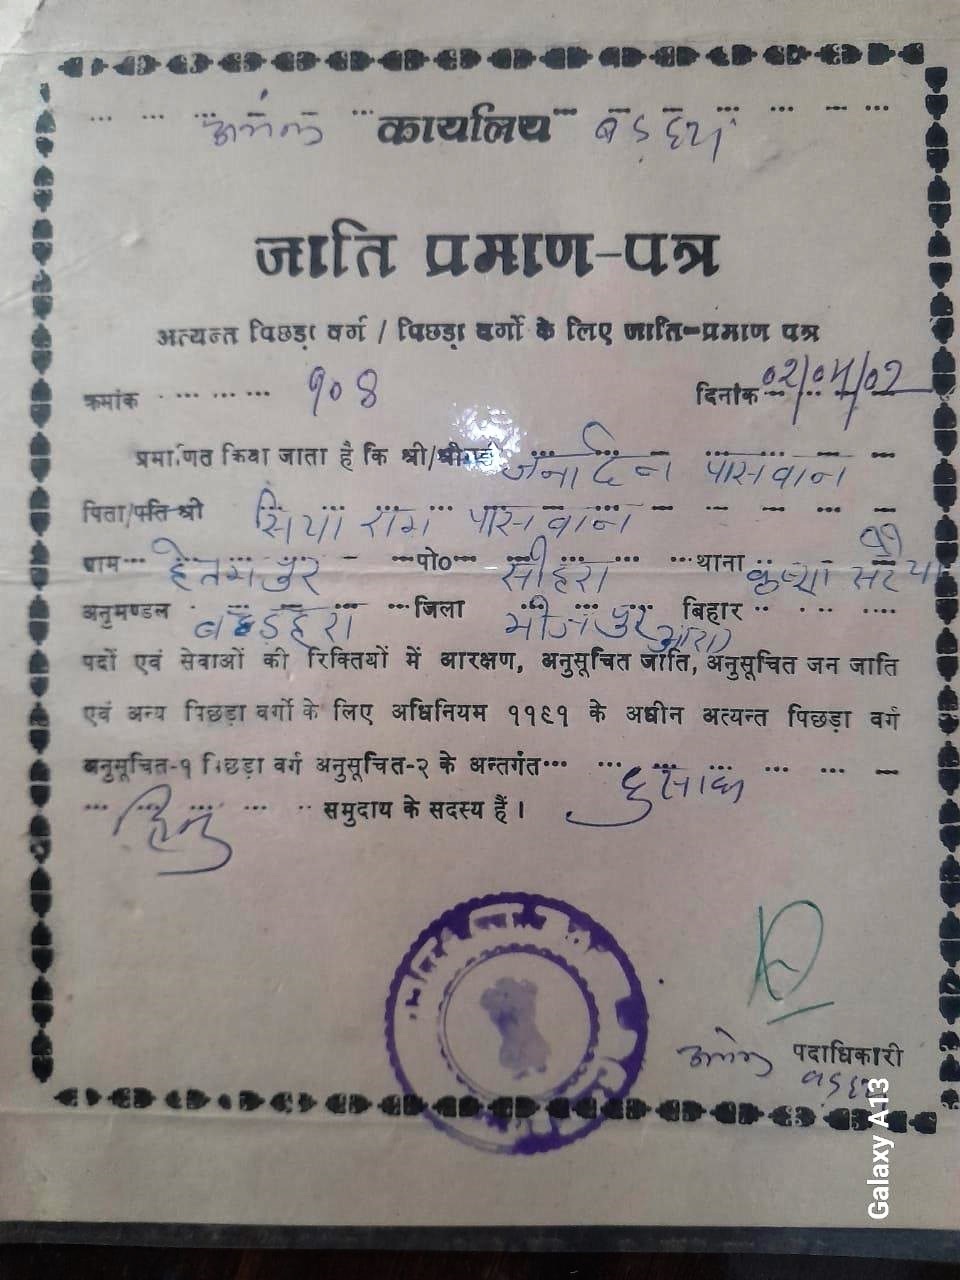 अंचल कार्यालय बड़हरा
जाति प्रमाण-पत्र
अत्यन्त पिछड़ा वर्ग / पिछड़ा वर्गो के लिए जाति-प्रमाण पत्र
क्रमांक ... ... ... १०४ दिनांक ०२/०५/०२
प्रमाणित किया जाता है कि श्री/श्रीमती जनार्दन पासवान
पिता/पति श्री सिया राम पासवान
ग्राम हेतमपुर पो० सीहरा थाना कृष्णा
अनुमण्डल बड़हरा जिला भोजपुर आरा बिहार
पदों एवं सेवाओं की रिक्तियों में आरक्षण, अनुसूचित जाति, अनुसूचित जन जाति
एवं अन्य पिछड़ा वर्गो के लिए अधिनियम १९९१ के अधीन अत्यन्त पिछड़ा वर्ग
अनुसूचित-१ पिछड़ा वर्ग अनुसूचित-२ के अन्तर्गत दुसाध
हिन्दु समुदाय के सदस्य हैं।
अंचल पदाधिकारी
बड़हरा
Galaxy A13